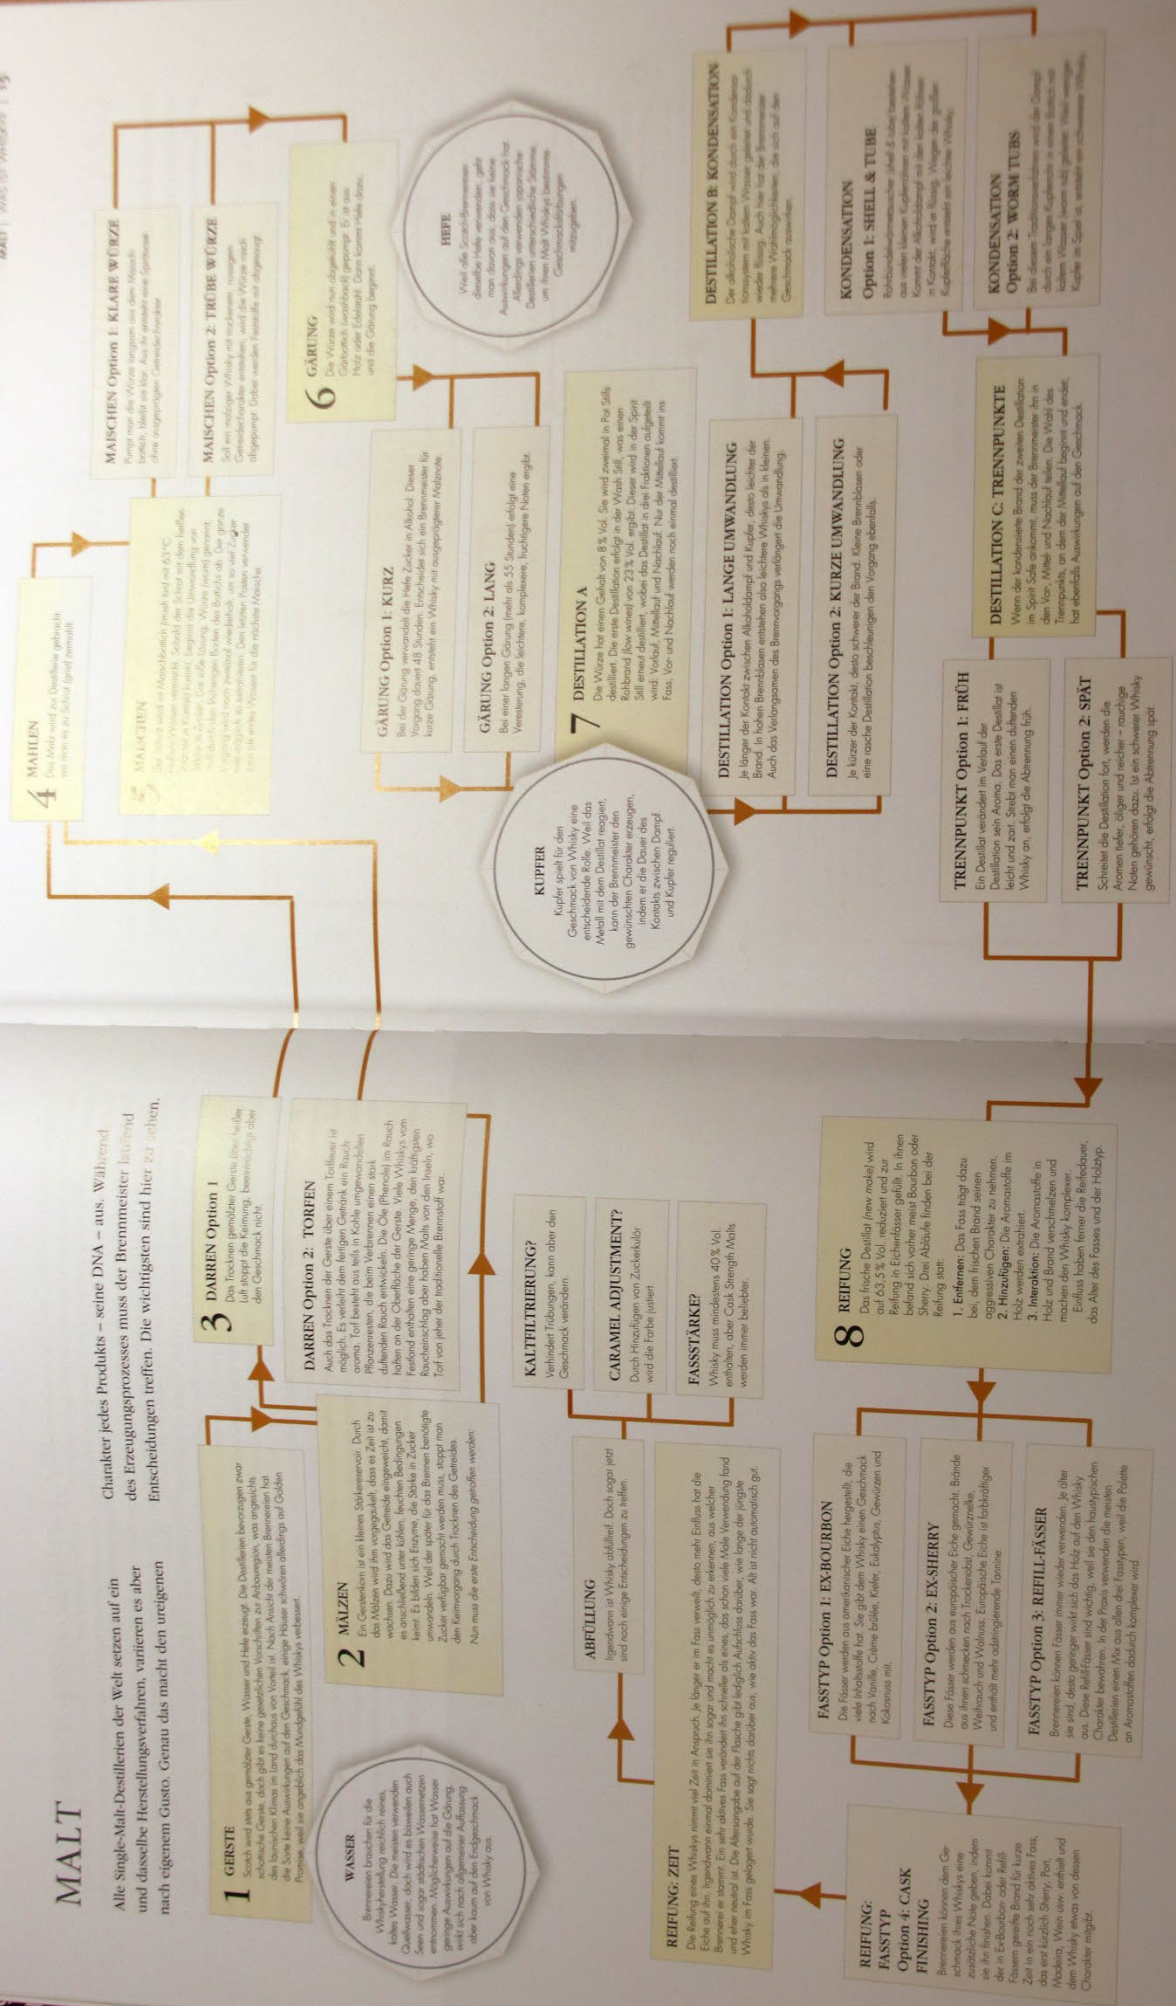 MALT
Alle Single-Malt-Destillerien der Welt setzen auf ein
und dasselbe Herstellungsverfahren, variieren es aber
nach eigenem Gusto. Genau das macht den ureigenen
Charakter jedes Produkts – seine DNA – aus. Während
des Erzeugungsprozesses muss der Brennmeister laufend
Entscheidungen treffen. Die wichtigsten sind hier zu sehen.
1 GERSTE
Scotch wird stets aus gemälzter Gerste, Wasser und Hefe erzeugt. Die Destillerien bevorzugen zwar
schottische Gerste, doch gibt es keine gesetzlichen Vorschriften zur Anbauregion, was angesichts
des launischen Klimas im Land durchaus von Vorteil ist. Nach Ansicht der meisten Brennereien hat
die Sorte keine Auswirkungen auf den Geschmack, einige Häuser schwören allerdings auf Golden
Promise, weil sie angeblich das Mundgefühl des Whiskys verbessert.
WASSER
Brennereien brauchen für die
Whiskyherstellung reichlich reines,
kaltes Wasser. Die meisten verwenden
Quellwasser, doch wird es bisweilen auch
Seen und sogar städtischen Wassernetzen
entnommen. Möglicherweise hat Wasser
geringe Auswirkungen auf die Gärung,
wirkt sich nach allgemeiner Auffassung
aber kaum auf den Endgeschmack
von Whisky aus.
2 MÄLZEN
Ein Gerstenkorn ist ein kleines Stärkereservoir. Durch
das Mälzen wird ihm vorgegaukelt, dass es Zeit ist zu
wachsen. Dazu wird das Getreide eingeweicht, damit
es anschließend unter kühlen, feuchten Bedingungen
keimt. Es bilden sich Enzyme, die Stärke in Zucker
umwandeln. Weil der später für das Brennen benötigte
Zucker verfügbar gemacht werden muss, stoppt man
den Keimvorgang durch Trocknen des Getreides.
Nun muss die erste Entscheidung getroffen werden:
3 DARREN Option 1
Das Trocknen gemälzter Gerste über heißer
Luft stoppt die Keimung, beeinträchtigt aber
den Geschmack nicht.
DARREN Option 2: TORFEN
Auch das Trocknen der Gerste über einem Torffeuer ist
möglich. Es verleiht dem fertigen Getränk ein Rauch-
aroma. Torf besteht aus teils in Kohle umgewandelten
Pflanzenresten, die beim Verbrennen einen stark
duftenden Rauch entwickeln. Die Öle (Phenole) im Rauch
haften an der Oberfläche der Gerste. Viele Whiskys vom
Festland enthalten eine geringe Menge, den kräftigsten
Raucheinschlag aber haben Malts von den Inseln, wo
Torf von jeher der traditionelle Brennstoff war.
MALT | WAS IST WHISKY? | 15
4 MAHLEN
Das Malz wird zur Destillerie gebracht,
wo man es zu Schrot (grist) zermahlt.
MAISCHEN
MAISCHEN Option 1: KLARE WÜRZE
Pumpt man die Würze langsam aus dem Maisch-
bottich, bleibt sie klar. Aus ihr entsteht eine Spirituose
ohne ausgeprägten Getreidecharakter.
MAISCHEN Option 2: TRÜBE WÜRZE
Soll ein malziger Whisky mit trockenem, nussigem
Getreidecharakter entstehen, wird die Würze rasch
abgepumpt. Dabei werden Feststoffe mit abgesaugt.
6 GÄRUNG
Die Würze wird nun abgekühlt und in einen
Gärbottich (washback) gepumpt. Er ist aus
Holz oder Edelstahl. Dann kommt Hefe dazu,
und die Gärung beginnt.
HEFE
Weil alle Scotch-Brennereien
dieselbe Hefe verwenden, geht
man davon aus, dass sie keine
Auswirkungen auf den Geschmack hat.
Allerdings verwenden japanische
Destillerien unterschiedliche Stämme,
um ihren Malt Whiskys bestimmte
Geschmacksfärbungen
mitzugeben.
GÄRUNG Option 1: KURZ
Bei der Gärung verwandelt die Hefe Zucker in Alkohol. Dieser
Vorgang dauert 48 Stunden. Entscheidet sich ein Brennmeister für
kurze Gärung, entsteht ein Whisky mit ausgeprägterer Malznote.
GÄRUNG Option 2: LANG
Bei einer langen Gärung (mehr als 55 Stunden) erfolgt eine
Veresterung, die leichtere, komplexere, fruchtigere Noten ergibt.
7 DESTILLATION A
Die Würze hat einen Gehalt von 8 % Vol. Sie wird zweimal in Pot Stills
destilliert. Die erste Destillation erfolgt in der Wash Still, was einen
Rohbrand (low wines) von 23 % Vol. ergibt. Dieser wird in der Spirit
Still erneut destilliert, wobei das Destillat in drei Fraktionen aufgeteilt
wird: Vorlauf, Mittellauf und Nachlauf. Nur der Mittellauf kommt ins
Fass, Vor- und Nachlauf werden noch einmal destilliert.
KUPFER
Kupfer spielt für den
Geschmack von Whisky eine
entscheidende Rolle. Weil das
Metall mit dem Destillat reagiert,
kann der Brennmeister den
gewünschten Charakter erzeugen,
indem er die Dauer des
Kontakts zwischen Dampf
und Kupfer reguliert.
DESTILLATION Option 1: LANGE UMWANDLUNG
Je länger der Kontakt zwischen Alkoholdampf und Kupfer, desto leichter der
Brand. In hohen Brennblasen entstehen also leichtere Whiskys als in kleinen.
Auch das Verlangsamen des Brennvorgangs verlängert die Umwandlung.
DESTILLATION Option 2: KURZE UMWANDLUNG
Je kürzer der Kontakt, desto schwerer der Brand. Kleine Brennblasen oder
eine rasche Destillation beschleunigen den Vorgang ebenfalls.
DESTILLATION B: KONDENSATION
Der alkoholische Dampf wird durch ein Kondensa-
tionssystem mit kaltem Wasser geleitet und dadurch
wieder flüssig. Auch hier hat der Brennmeister
mehrere Wahlmöglichkeiten, die sich auf den
Geschmack auswirken.
KONDENSATION
Option 1: SHELL & TUBE
Rohrbündelwärmetauscher (shell & tube) bestehen
aus vielen kleinen Kupferrohren mit kaltem Wasser.
Kommt der Alkoholdampf mit den kalten Röhren
in Kontakt, wird er flüssig. Wegen der großen
Kupferfläche entsteht ein leichter Whisky.
KONDENSATION
Option 2: WORM TUBS
Bei diesem Traditionsverfahren wird der Dampf
durch ein langes Kupferrohr in einem Bottich mit
kaltem Wasser (worm tub) geleitet. Weil weniger
Kupfer im Spiel ist, entsteht ein schwererer Whisky.
DESTILLATION C: TRENNPUNKTE
Wenn der kondensierte Brand der zweiten Destillation
im Spirit Safe ankommt, muss der Brennmeister ihn in
den Vor-, Mittel- und Nachlauf teilen. Die Wahl des
Trennpunkts, an dem der Mittellauf beginnt und endet,
hat ebenfalls Auswirkungen auf den Geschmack.
TRENNPUNKT Option 1: FRÜH
Ein Destillat verändert im Verlauf der
Destillation sein Aroma. Das erste Destillat ist
leicht und zart. Strebt man einen duftenden
Whisky an, erfolgt die Abtrennung früh.
TRENNPUNKT Option 2: SPÄT
Schreitet die Destillation fort, werden die
Aromen tiefer, öliger und reicher – rauchige
Noten gehören dazu. Ist ein schwerer Whisky
gewünscht, erfolgt die Abtrennung spät.
8 REIFUNG
Das frische Destillat (new make) wird
auf 63,5 % Vol. reduziert und zur
Reifung in Eichenfässer gefüllt. In ihnen
befand sich vorher meist Bourbon oder
Sherry. Drei Abläufe finden bei der
Reifung statt:
1. Entfernen: Das Fass trägt dazu
bei, dem frischen Brand seinen
aggressiven Charakter zu nehmen.
2. Hinzufügen: Die Aromastoffe im
Holz werden extrahiert.
3. Interaktion: Die Aromastoffe in
Holz und Brand verschmelzen und
machen den Whisky komplexer.
Einfluss haben ferner die Reifedauer,
das Alter des Fasses und der Holztyp.
FASSTYP Option 1: EX-BOURBON
Die Fässer werden aus amerikanischer Eiche hergestellt, die
viele Inhaltsstoffe hat. Sie gibt dem Whisky einen Geschmack
nach Vanille, Crème brûlée, Kiefer, Eukalyptus, Gewürzen und
Kokosnuss mit.
FASSTYP Option 2: EX-SHERRY
Diese Fässer werden aus europäischer Eiche gemacht. Brände
aus ihnen schmecken nach Trockenobst, Gewürznelke,
Weihrauch und Walnuss. Europäische Eiche ist farbkräftiger
und enthält mehr adstringierende Tannine.
FASSTYP Option 3: REFILL-FÄSSER
Brennereien können Fässer immer wieder verwenden. Je älter
sie sind, desto geringer wirkt sich das Holz auf den Whisky
aus. Diese Refill-Fässer sind wichtig, weil sie den haustypischen
Charakter bewahren. In der Praxis verwenden die meisten
Destillerien einen Mix aus allen drei Fasstypen, weil die Palette
an Aromastoffen dadurch komplexer wird.
REIFUNG:
FASSTYP
Option 4: CASK
FINISHING
Brennereien können dem Ge-
schmack ihres Whiskys eine
zusätzliche Note geben, indem
sie ihn finishen. Dabei kommt
der in Ex-Bourbon- oder Refill-
Fässern gereifte Brand für kurze
Zeit in ein noch sehr aktives Fass,
das erst kürzlich Sherry, Port,
Madeira, Wein usw. enthielt und
dem Whisky etwas von dessen
Charakter mitgibt.
REIFUNG: ZEIT
Die Reifung eines Whiskys nimmt viel Zeit in Anspruch. Je länger er im Fass verweilt, desto mehr Einfluss hat die
Eiche auf ihn. Irgendwann einmal dominiert sie ihn sogar und macht es unmöglich zu erkennen, aus welcher
Brennerei er stammt. Ein sehr aktives Fass verändert ihn schneller als eines, das schon viele Male Verwendung fand
und eher neutral ist. Die Altersangabe auf der Flasche gibt lediglich Aufschluss darüber, wie lange der jüngste
Whisky im Fass gelagert wurde. Sie sagt nichts darüber aus, wie aktiv das Fass war. Alt ist nicht automatisch gut.
ABFÜLLUNG
Irgendwann ist Whisky abfüllreif. Doch sogar jetzt
sind noch einige Entscheidungen zu treffen.
KALTFILTRIERUNG?
Verhindert Trübungen, kann aber den
Geschmack verändern.
CARAMEL ADJUSTMENT?
Durch Hinzufügen von Zuckerkulör
wird die Farbe justiert.
FASSSTÄRKE?
Whisky muss mindestens 40 % Vol.
enthalten, aber Cask Strength Malts
werden immer beliebter.